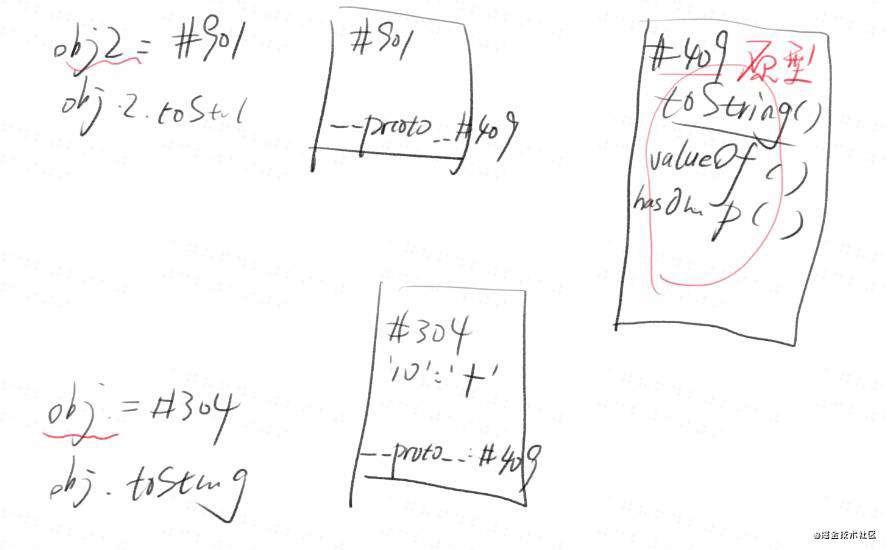 obj2 = #901
obj.2.toStri
#901
--proto--#409
#409 原型
toString()
valueOf()
hasOwnp()
obj = #304
obj.toString
#304
'10':'+'
--proto--:#409
@掘金技术社区